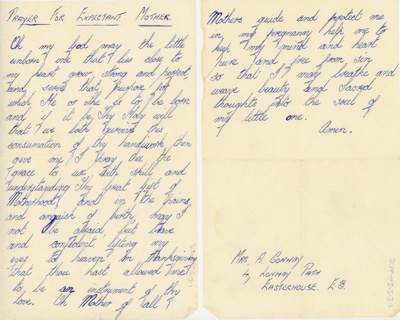 PRAYER FOR EXPECTANT MOTHER.
Oh my God may the little
unborn one that lies close to
my heart grow strong and perfect,
and serve that purpose for
which He or she is to be born
and if it be Thy Holy will
that we both survive this
consumation of thy handiwork then
give me I pray thee the
grace to use with skill and
understanding Thy great gift of
Motherhood, and in the pains
and anguish of birth, may I
not be afraid, but brave
and confident lifting my
eyes to heaven in thanksgiving
that thou hast allowed me
to be an instrument of thy
love. Oh Mother of all
Mothers guide and protect me
in my pregnancy help me to
keep my mind and heart
pure and free from sin
so that I may breathe and
weave beauty and sacred
thoughts into the soul of
my little one.
Amen.
MRS. A. CONWAY
4, CONWAY PATH
EASTERHOUSE. E.3.